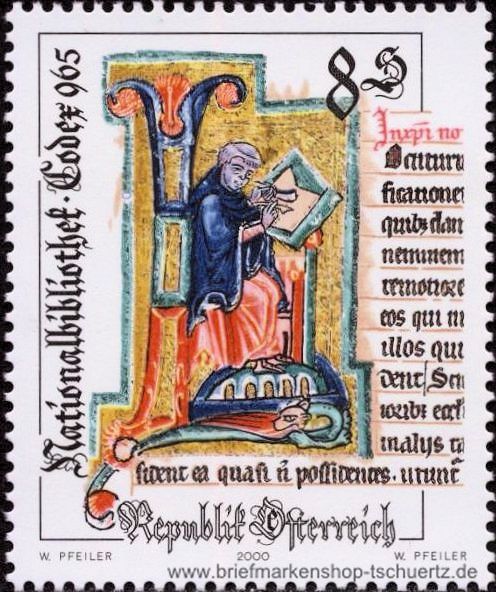 Nationalbibliothek · Codex 965
8 S
ficatione
quibz dam
neminem
remotiore
eos qui
illos qui
dent
sident ea quasi n̄ possidentes.
Republik Österreich
W. PFEILER 2000 W. PFEILER
www.briefmarkenshop-tschuertz.de